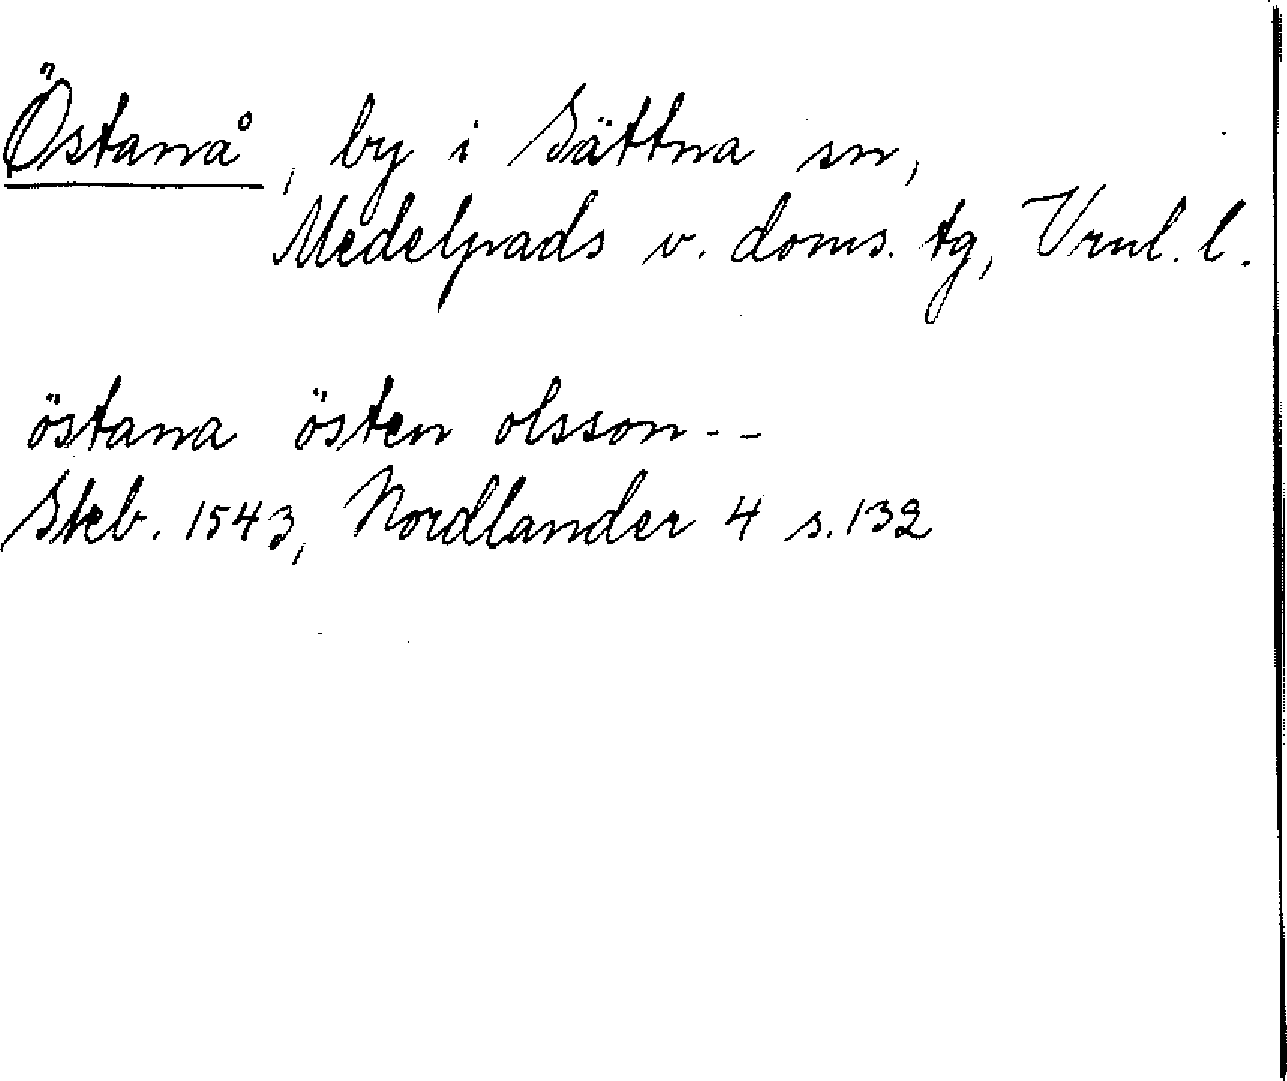 Östanå, by i Sättna sn,
Medelpads v. doms. tg, Vrnl. l.
östana östen olsson - -
Skb. 1543, Nordlander 4 s. 132